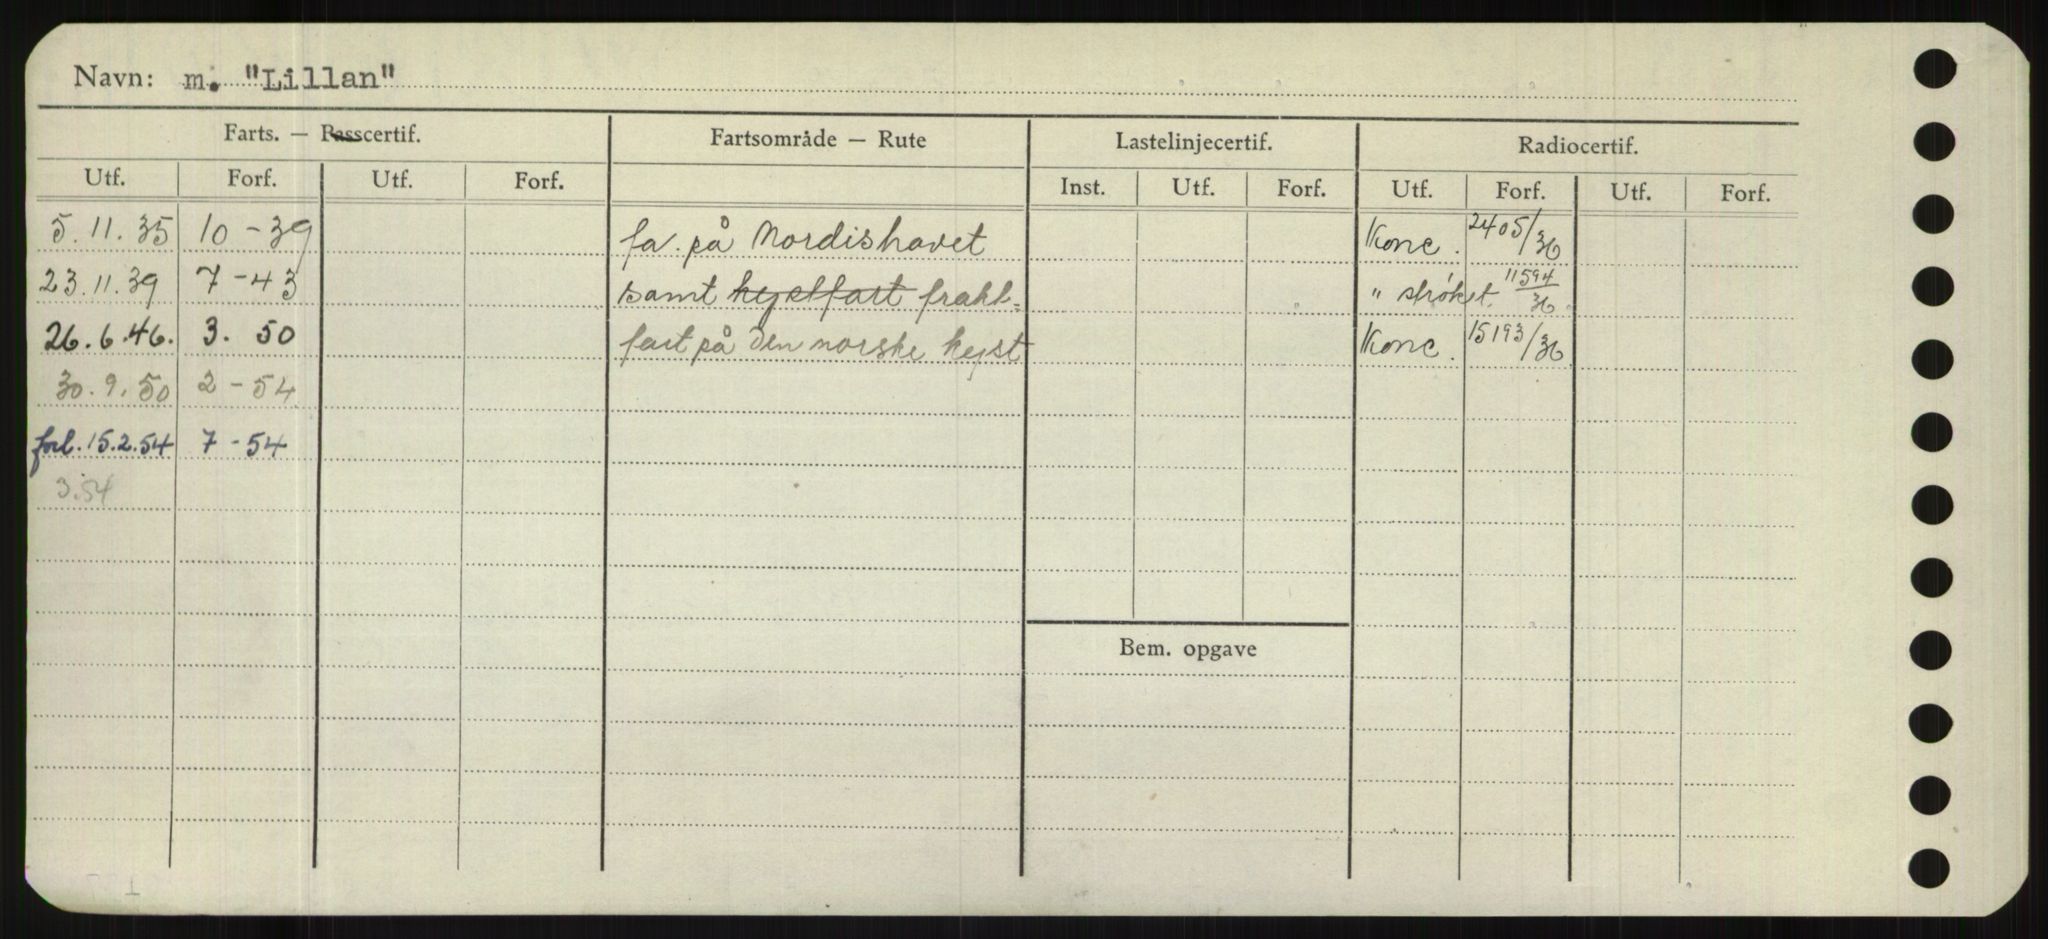 Navn: m. "Lillan"
Farts. — Passcertif. Fartsområde — Rute Lastelinjecertif. Radiocertif.
Utf. Forf. Utf. Forf. Inst. Utf. Forf. Utf. Forf. Utf. Forf.
5.11.35 10-39 fa. på Nordishavet Konc. 2405/36
23.11.39 7-43 samt kystfart frakt- " strøket 11594/36
26.6.46. 3. 50 fart på den norske kyst Konc. 15193/36
30.9.50 2-54
forl. 15.2.54 7-54
3.54
Bem. opgave